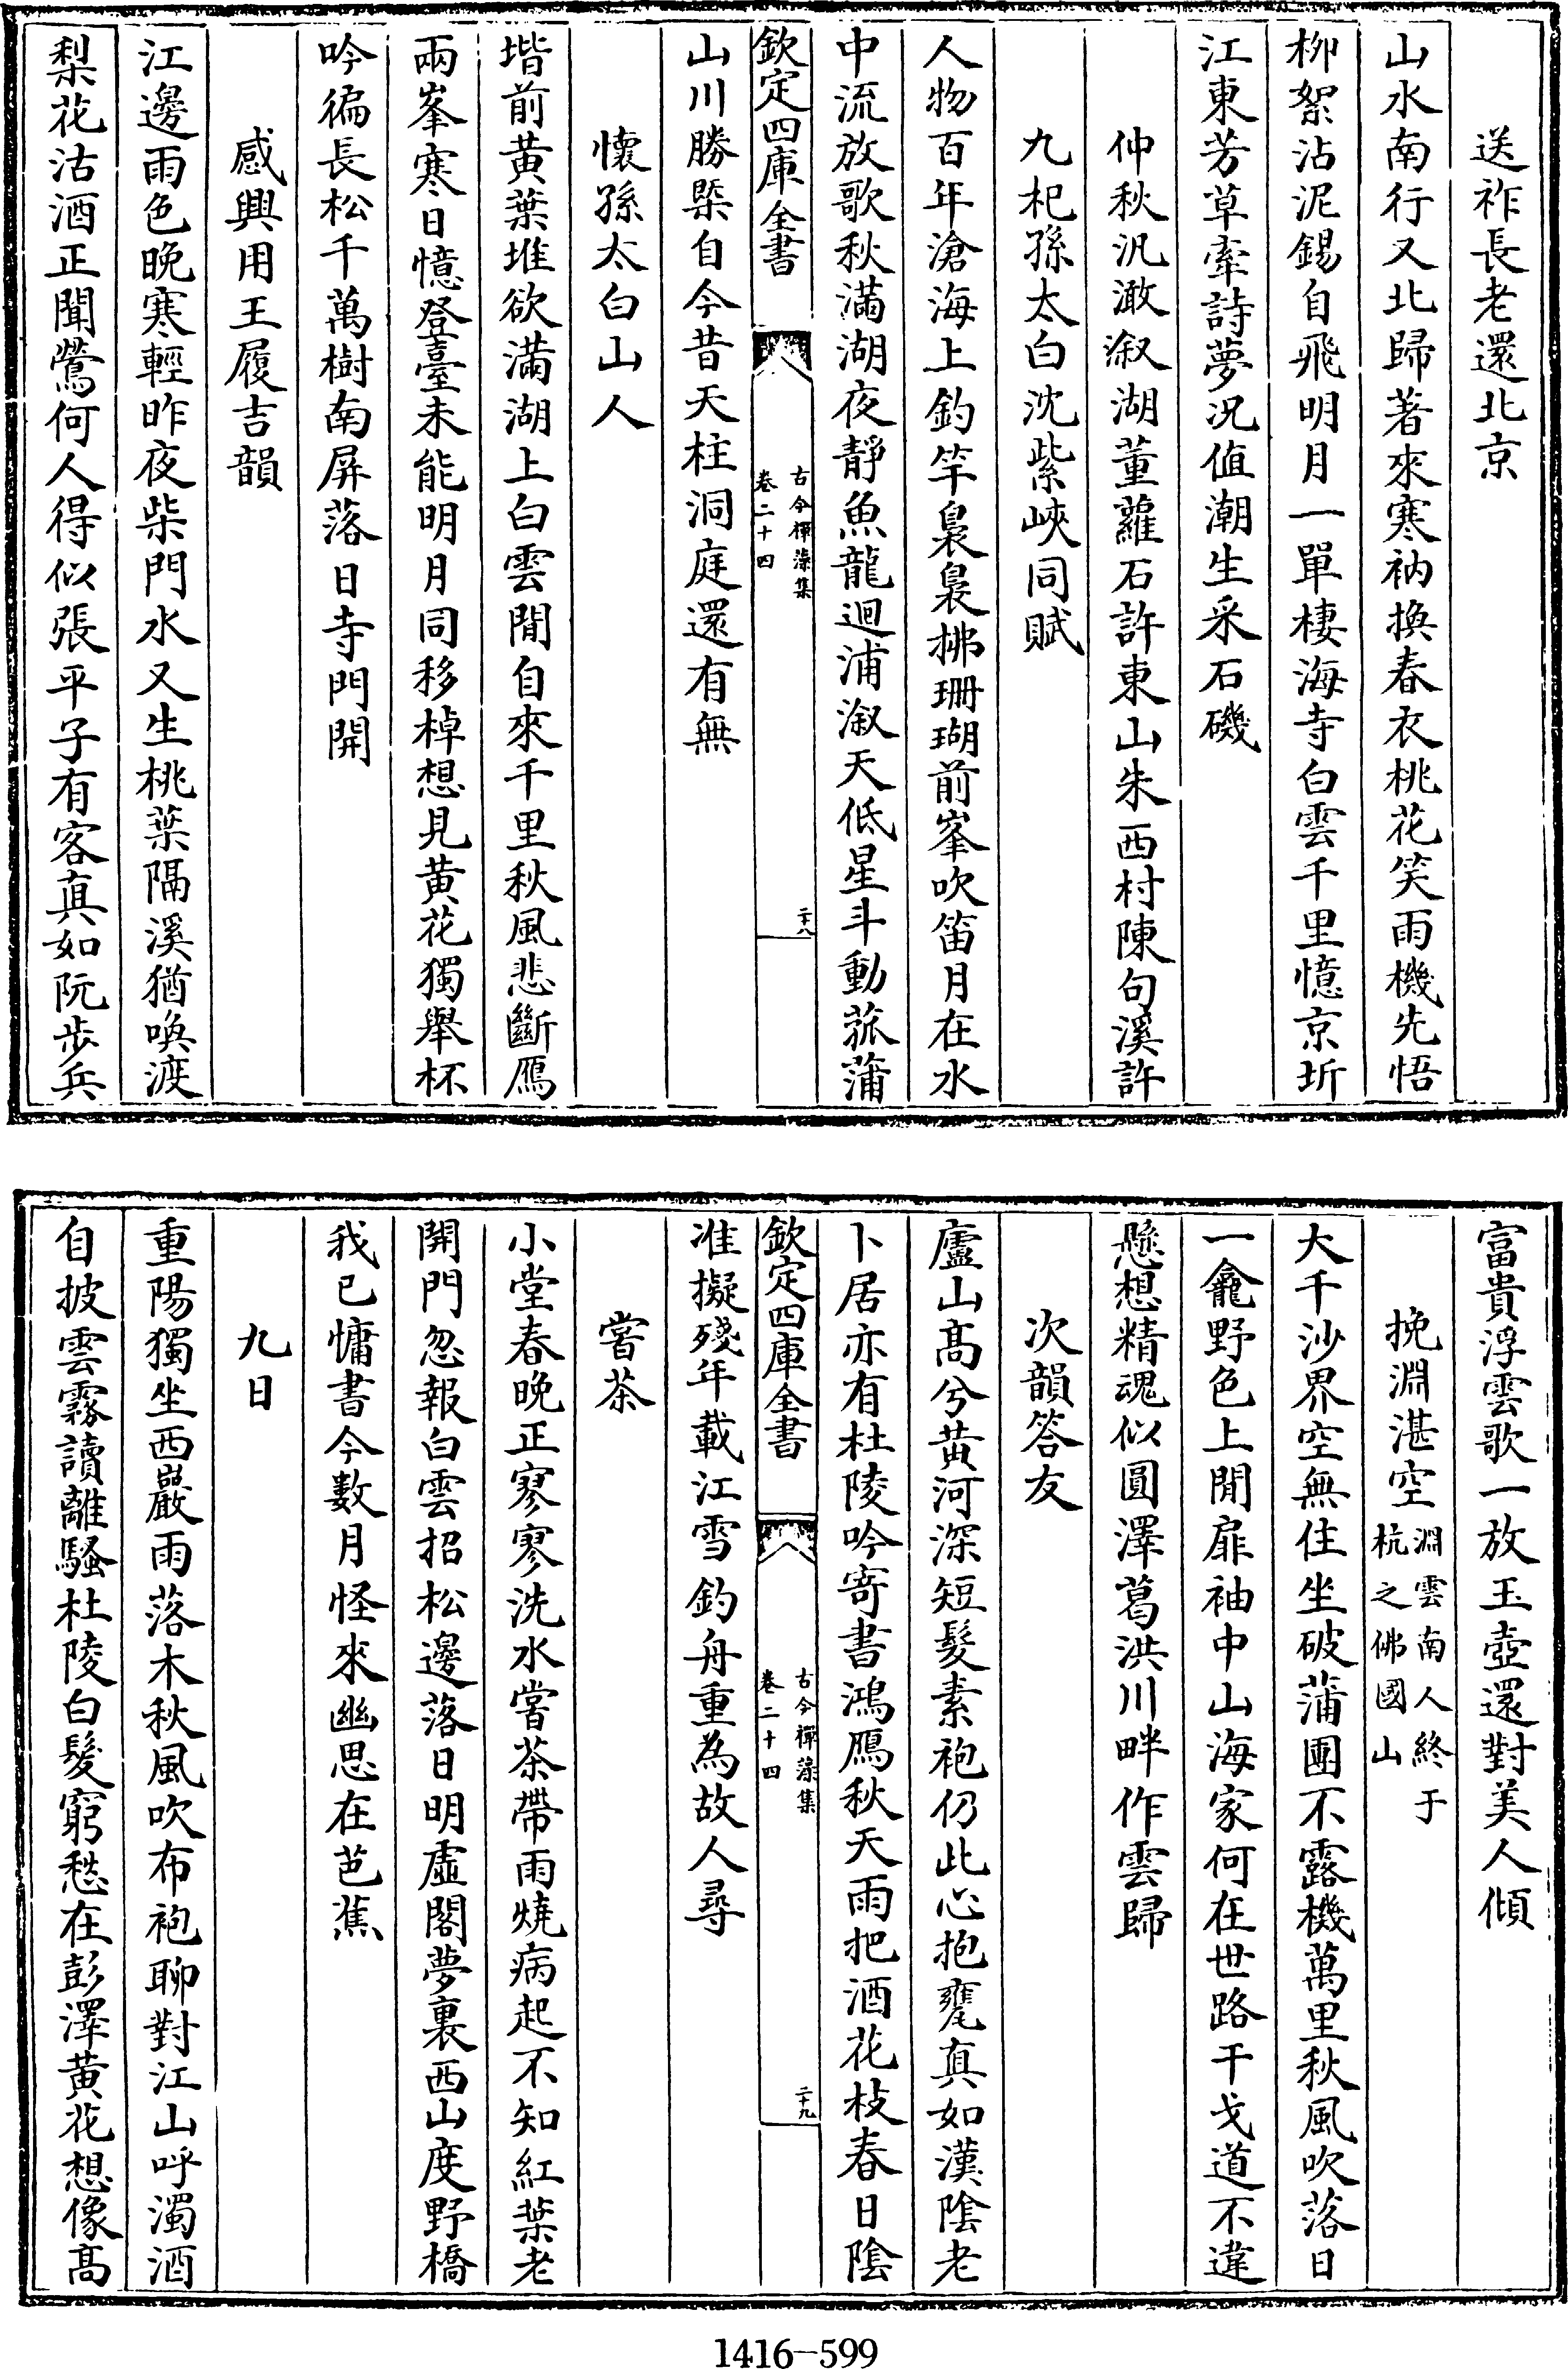 送祚長老還北京
山水南行又北歸著來寒衲換春衣桃花笑雨機先悟
柳絮沾泥錫自飛明月一單棲海寺白雲千里憶京圻
江東芳草牽詩夢況值潮生采石磯
仲秋汎澉溆湖董蘿石許東山朱西村陳句溪許
九杞孫太白沈紫峽同賦
人物百年滄海上釣竿裊裊拂珊瑚前峯吹笛月在水
中流放歌秋滿湖夜靜魚龍迴浦溆天低星斗動菰蒲
欽定四庫全書
古今禪藻集
卷二十四
二十八
山川勝槩自今昔天柱洞庭還有無
懷孫太白山人
堦前黄葉堆欲滿湖上白雲閒自來千里秋風悲斷鴈
兩峯寒日憶登臺未能明月同移棹想見黄花獨舉杯
吟徧長松千萬樹南屏落日寺門開
感興用王履吉韻
江邊雨色晚寒輕昨夜柴門水又生桃葉隔溪猶喚渡
梨花沽酒正聞鶯何人得似張平子有客真如阮步兵
富貴浮雲歌一放玉壺還對美人傾
挽淵湛空
淵雲南人終于
杭之佛國山
大千沙界空無住坐破蒲團不露機萬里秋風吹落日
一龕野色上閒扉袖中山海家何在世路干戈道不違
懸想精魂似圓澤葛洪川畔作雲歸
次韻答友
廬山高兮黄河深短髮素袍仍此心抱甕真如漢陰老
卜居亦有杜陵吟寄書鴻鴈秋天雨把酒花枝春日陰
欽定四庫全書
古今禪藻集
卷二十四
二十九
准擬殘年載江雪釣舟重為故人尋
嘗茶
小堂春晚正寥寥洗水嘗茶帶雨燒病起不知紅葉老
開門忽報白雲招松邊落日明虛閣夢裏西山度野橋
我已慵書今數月怪來幽思在芭蕉
九日
重陽獨坐西巖雨落木秋風吹布袍聊對江山呼濁酒
自披雲霧讀離騷杜陵白髮窮愁在彭澤黄花想像高
1416-599